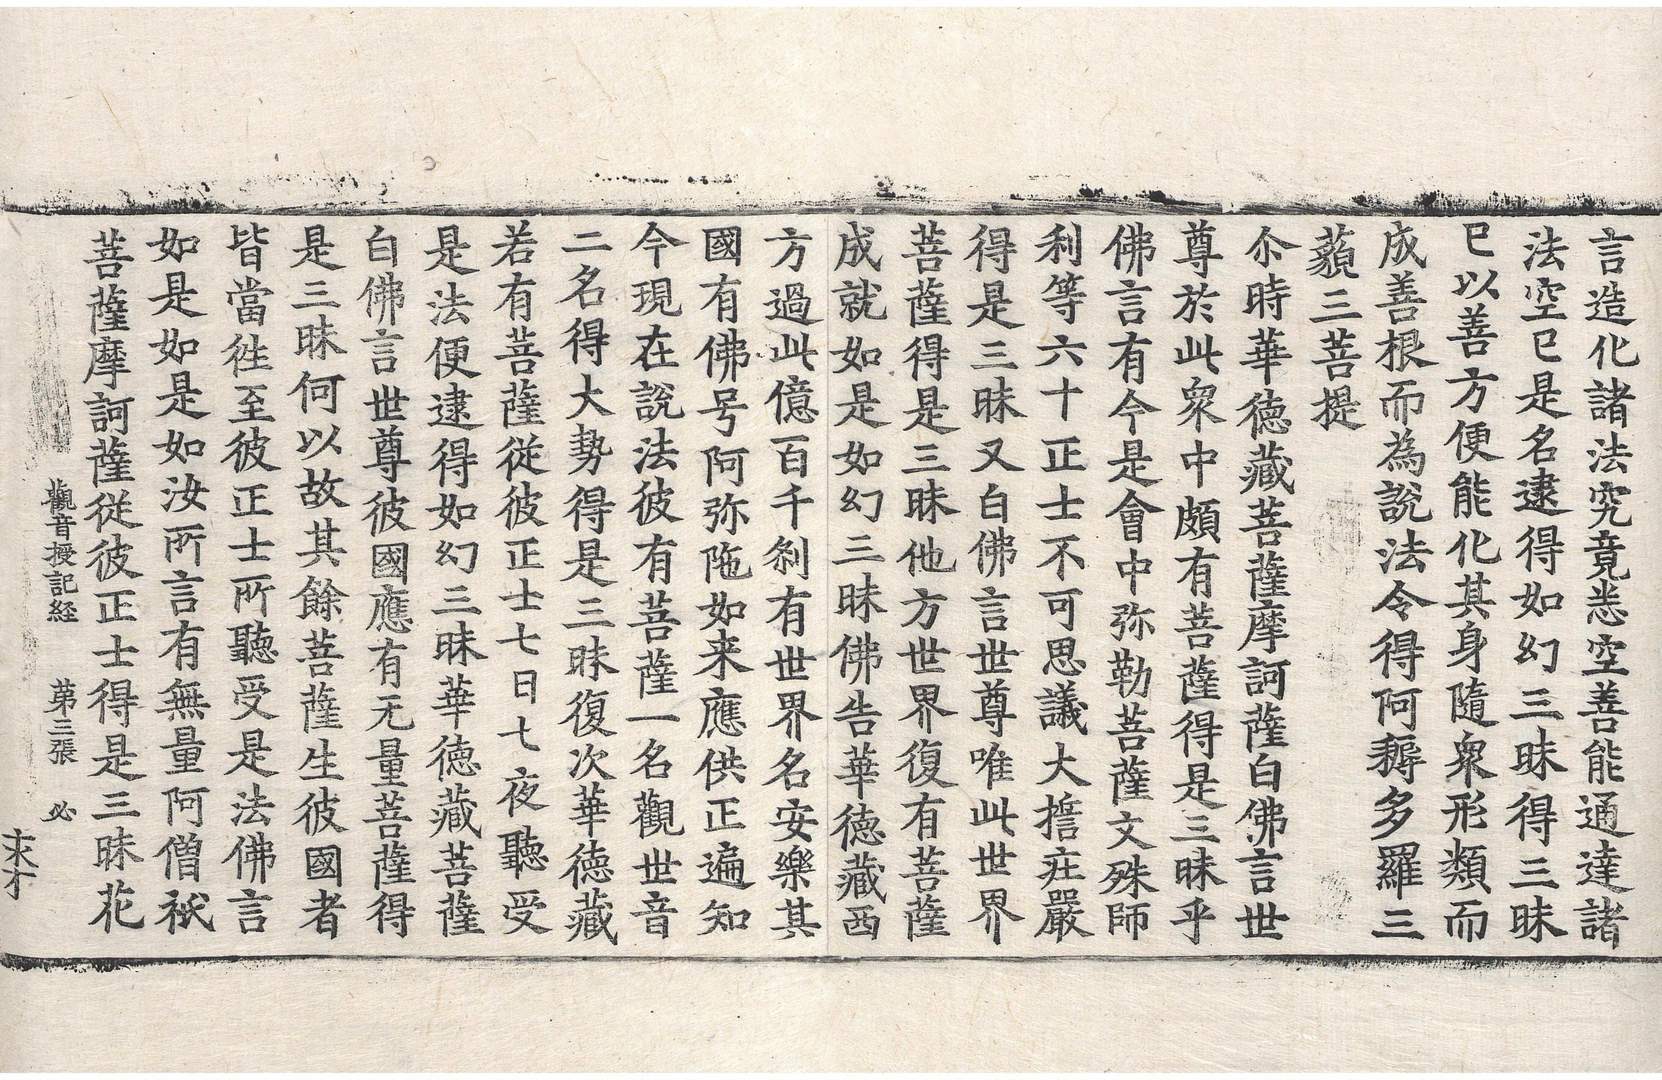 言造化諸法究竟悉空善能通達諸
法空已是名逮得如幻三昧得三昧
已以善方便能化其身隨衆形類而
成善根而為說法令得阿耨多羅三
藐三菩提
尒時華德藏菩薩摩訶薩白佛言世
尊於此衆中頗有菩薩得是三昧乎
佛言有今是會中弥勒菩薩文殊師
利等六十正士不可思議大擔庄嚴
得是三昧又白佛言世尊唯此世界
菩薩得是三昧他方世界復有菩薩
成就如是如幻三昧佛告華德藏西
方過此億百千剎有世界名安樂其
國有佛号阿弥陁如来應供正遍知
今現在說法彼有菩薩一名觀世音
二名得大勢得是三昧復次華德藏
若有菩薩從彼正士七日七夜聽受
是法便逮得如幻三昧華德藏菩薩
白佛言世尊彼國應有无量菩薩得
是三昧何以故其餘菩薩生彼國者
皆當徃至彼正士所聽受是法佛言
如是如是如汝所言有無量阿僧祇
菩薩摩訶薩從彼正士得是三昧花
觀音授記経 苐三張 必